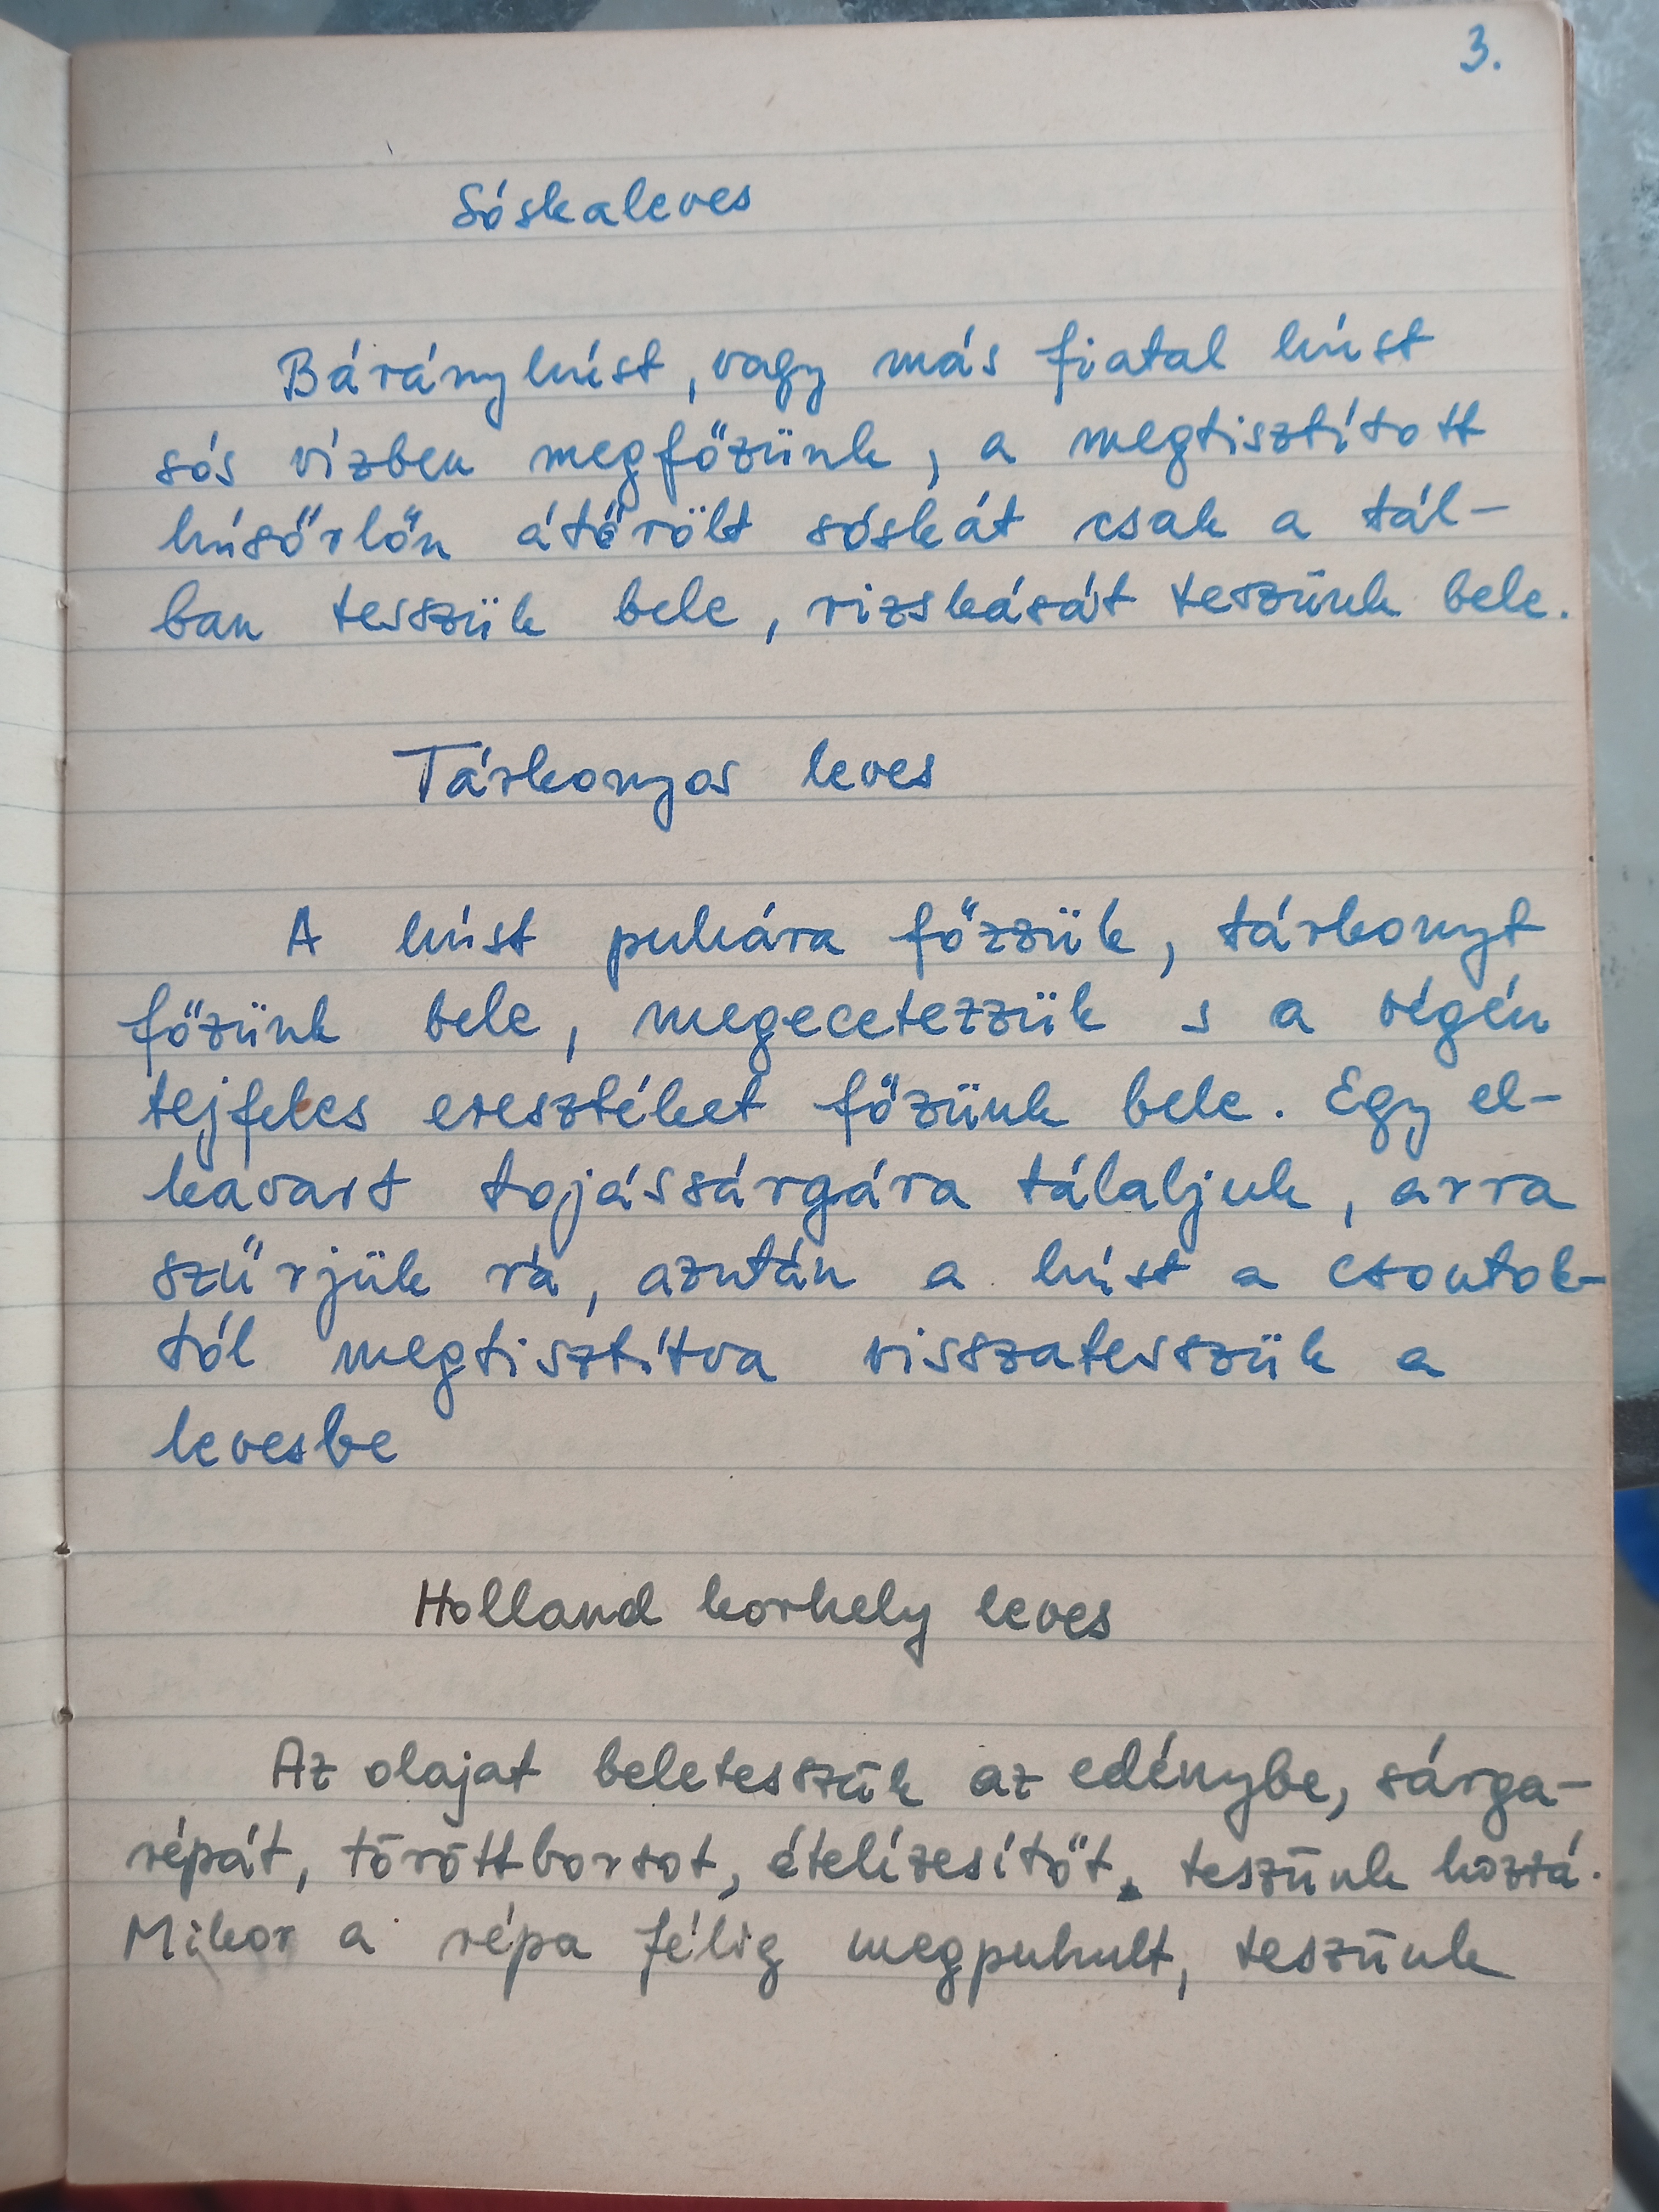 3.
Sóskaleves
Bárányhúst, vagy más fiatal húst
sós vízben megfőzünk, a megtisztított
húsőrlőn átőrölt sóskát csak a tál-
ban tesszük bele, rizskását teszünk bele.
Tárkonyos leves
A húst puhára főzzük, tárkonyt
főzünk bele, megecetezzük s a végén
tejfeles eresztéket főzünk bele. Egy el-
kavart tojássárgára tálaljuk, arra
szűrjük rá, azután a húst a csontok-
tól megtisztítva visszatesszük a
levesbe
Holland korhely leves
Az olajat beletesszük az edénybe, sárga-
répát, töröttborsot, ételízesítőt, teszünk hozzá.
Mikor a répa félig megpuhult, teszünk